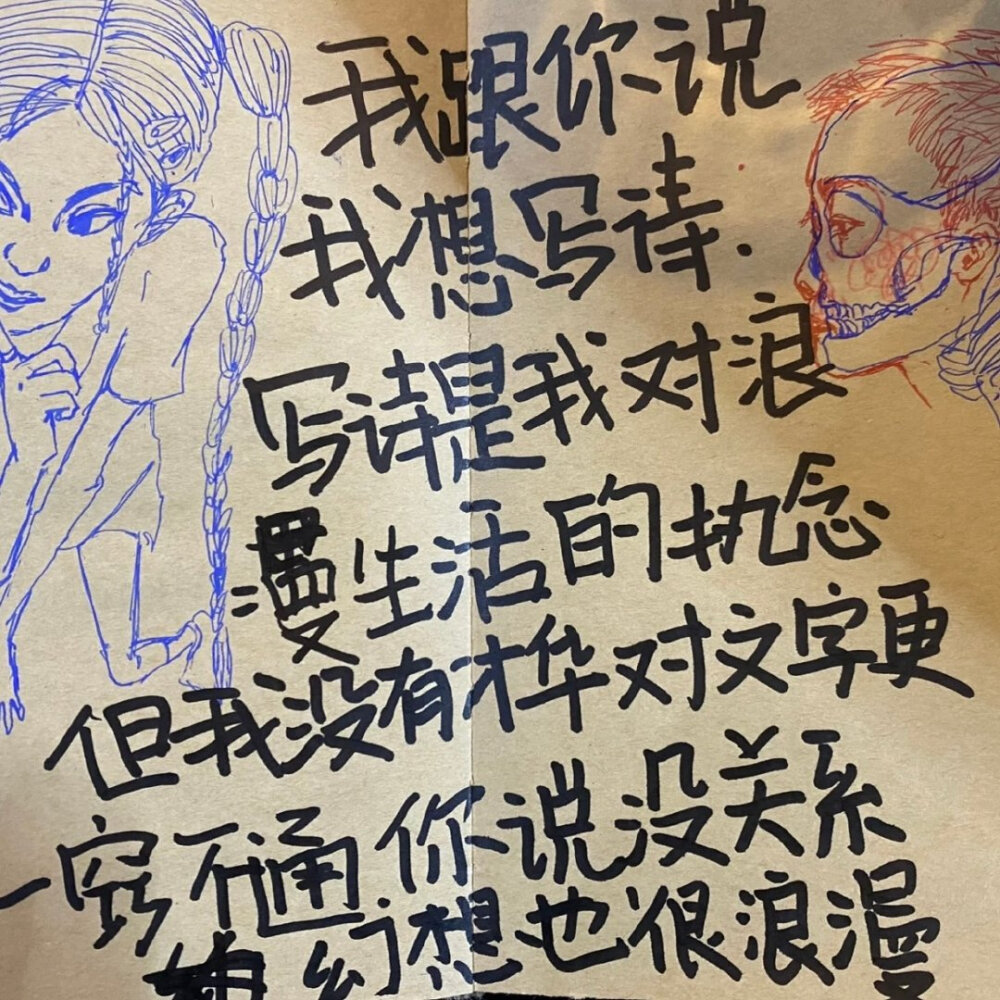 我跟你说
我想写诗.
写诗是我对浪
漫生活的执念
但我没有才华对文字更
一窍不通你说没关系
幻想也很浪漫